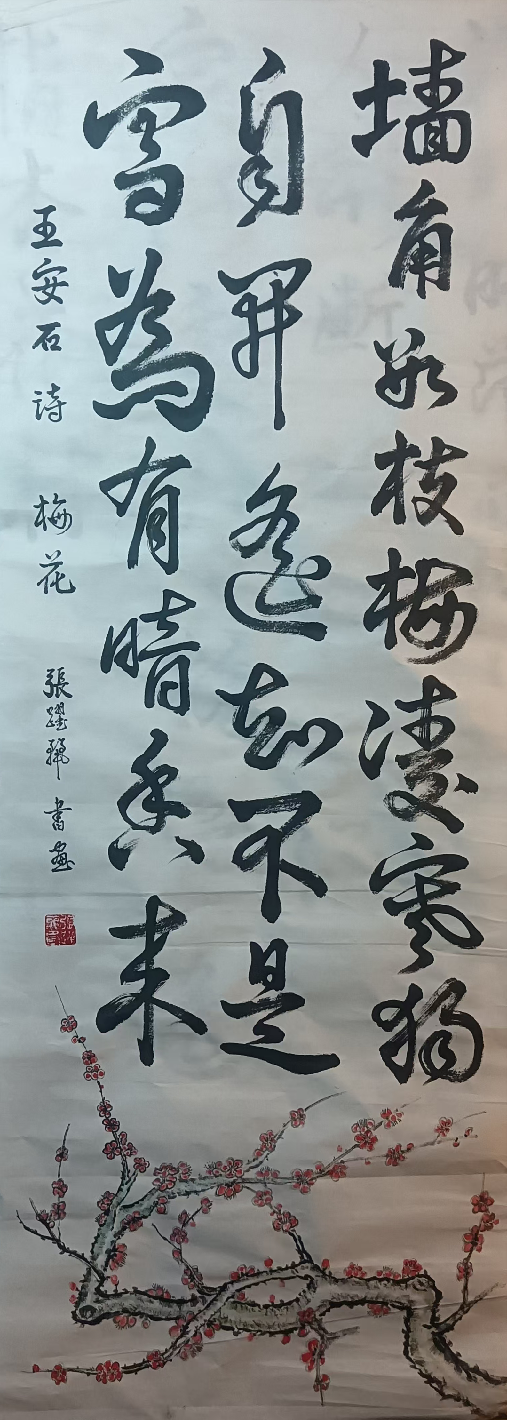 墙角数枝梅凌寒獨
自開遥知不是
雪為有暗香来
王安石 诗 梅花 張躍 書画